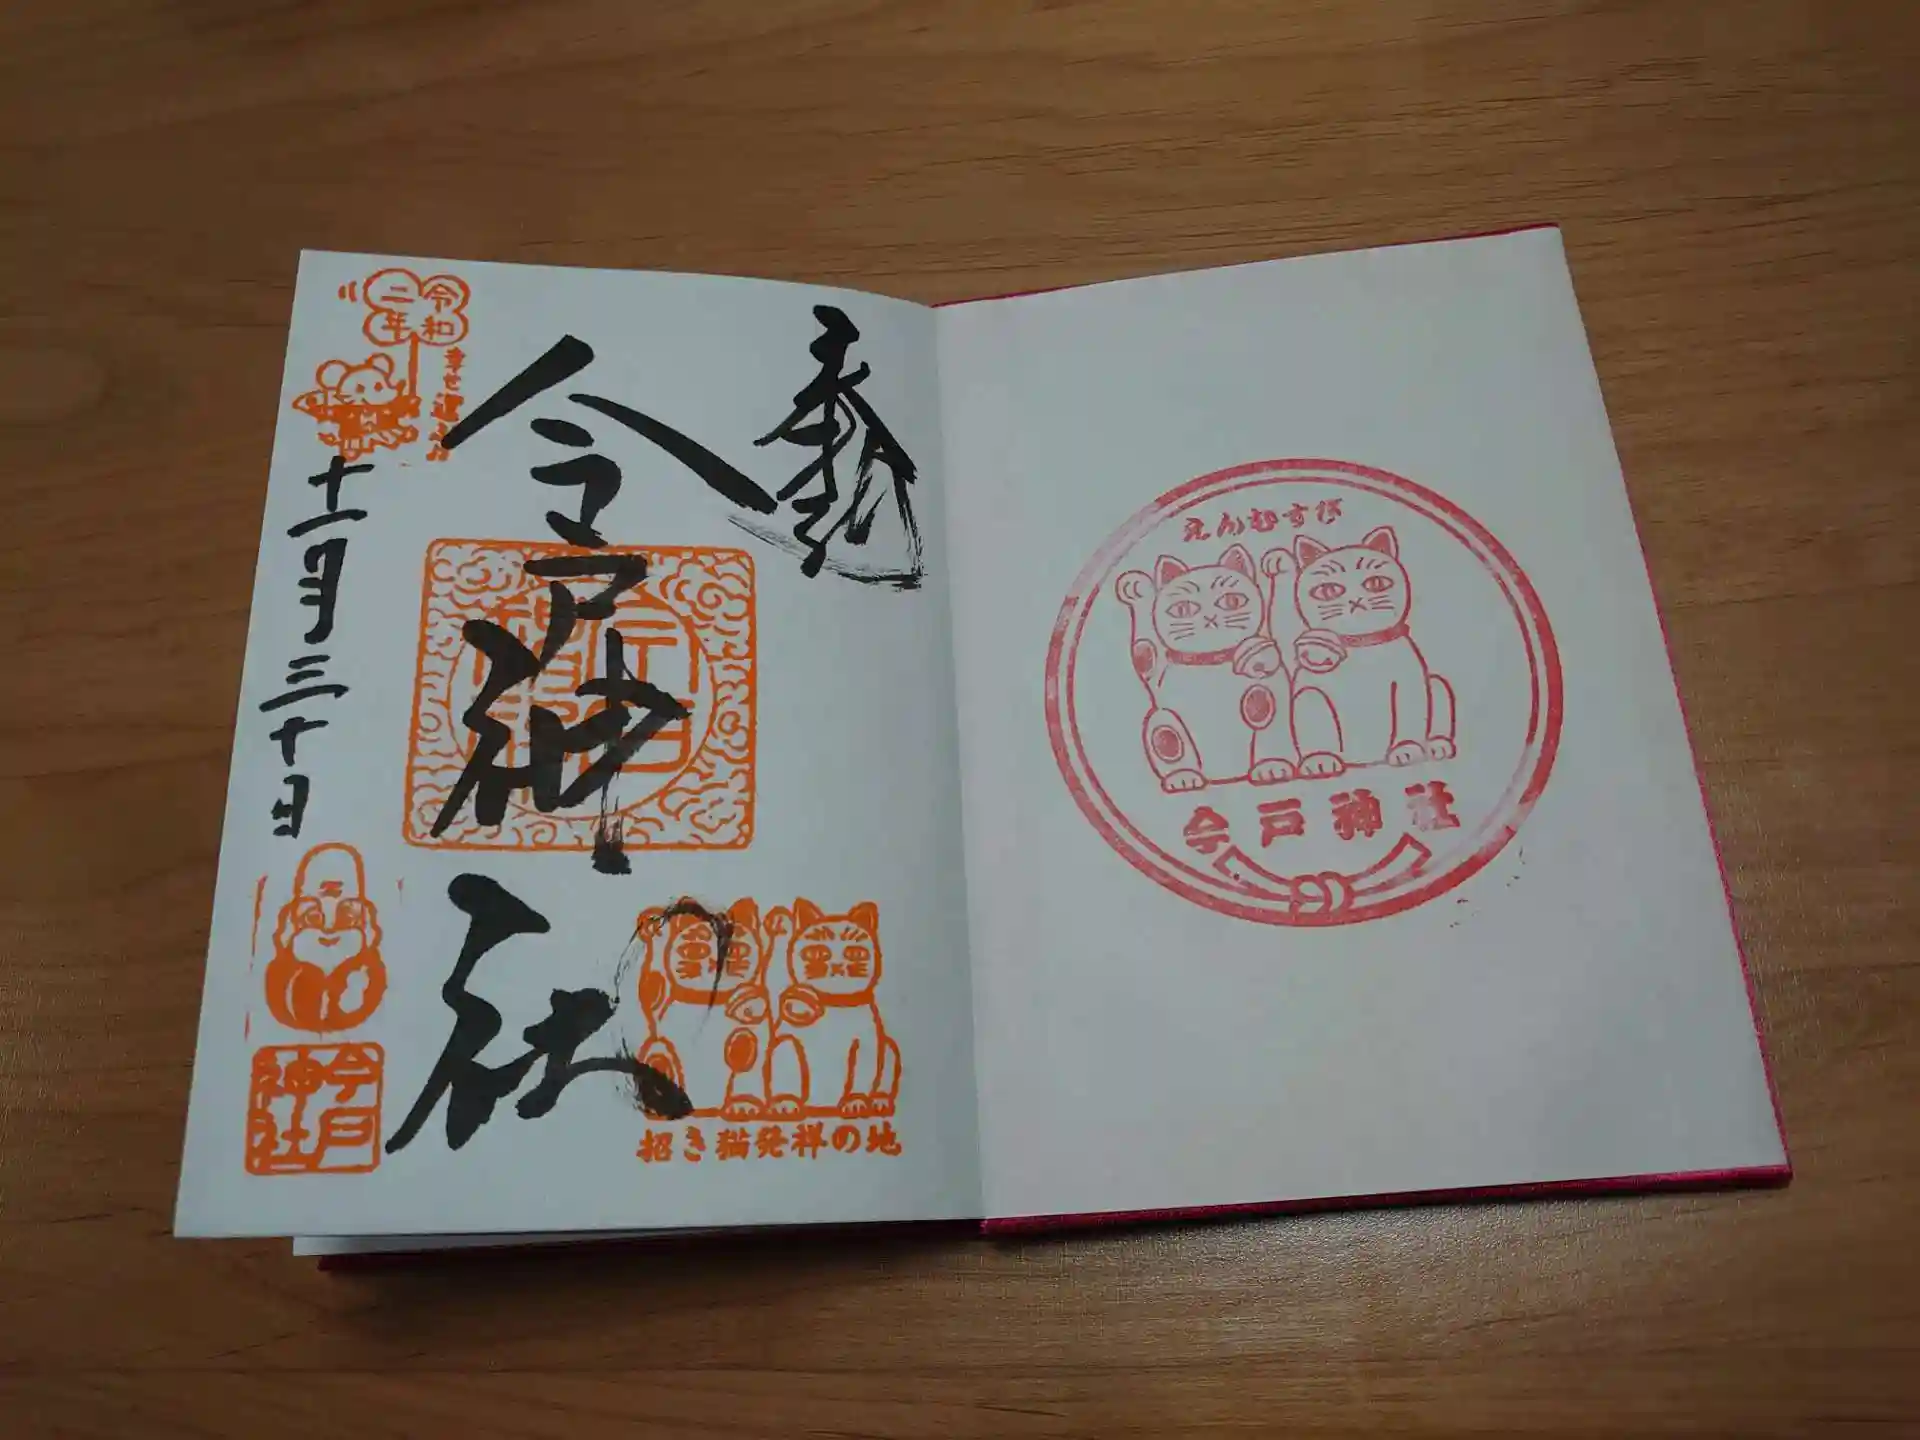 えんむすび
今戸神社
奉拝
今戸神社
招き猫発祥の地
令和
二年
幸せ運ぶ
十一月三十日
今戸
神社